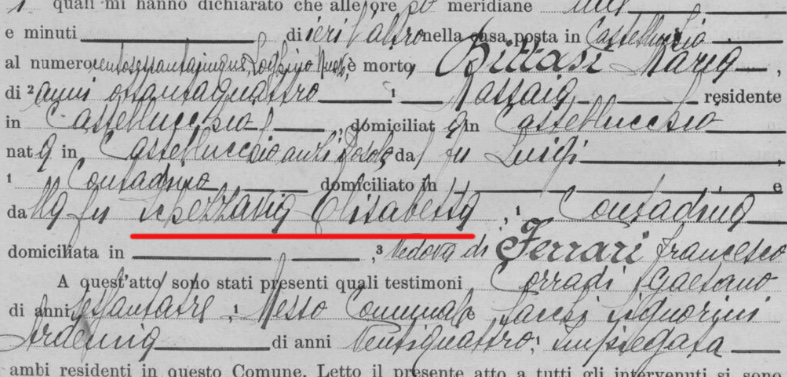 quali mi hanno dichiarato che alle ore meridiane
e minuti di ieri l'altro nella casa posta in Castelluccio
al numero è morta Bittasi Maria,
di ² anni ottantaquattro ¹ Massaia residente
in Castelluccio, domiciliata in Castelluccio
nata in Castelluccio da fu Luigi
¹ Contadino domiciliato in e
da fu Schezzaria Elisabetta, ¹ Contadina
domiciliata in , ³ Vedova di Ferrari Francesco
A quest'atto sono stati presenti quali testimoni Corradi Gaetano
di anni sessantatre, ¹ Messo Comunale Signorini
Ardemia di anni Ventiquattro, Impiegata
ambi residenti in questo Comune. Letto il presente atto a tutti gli intervenuti si sono